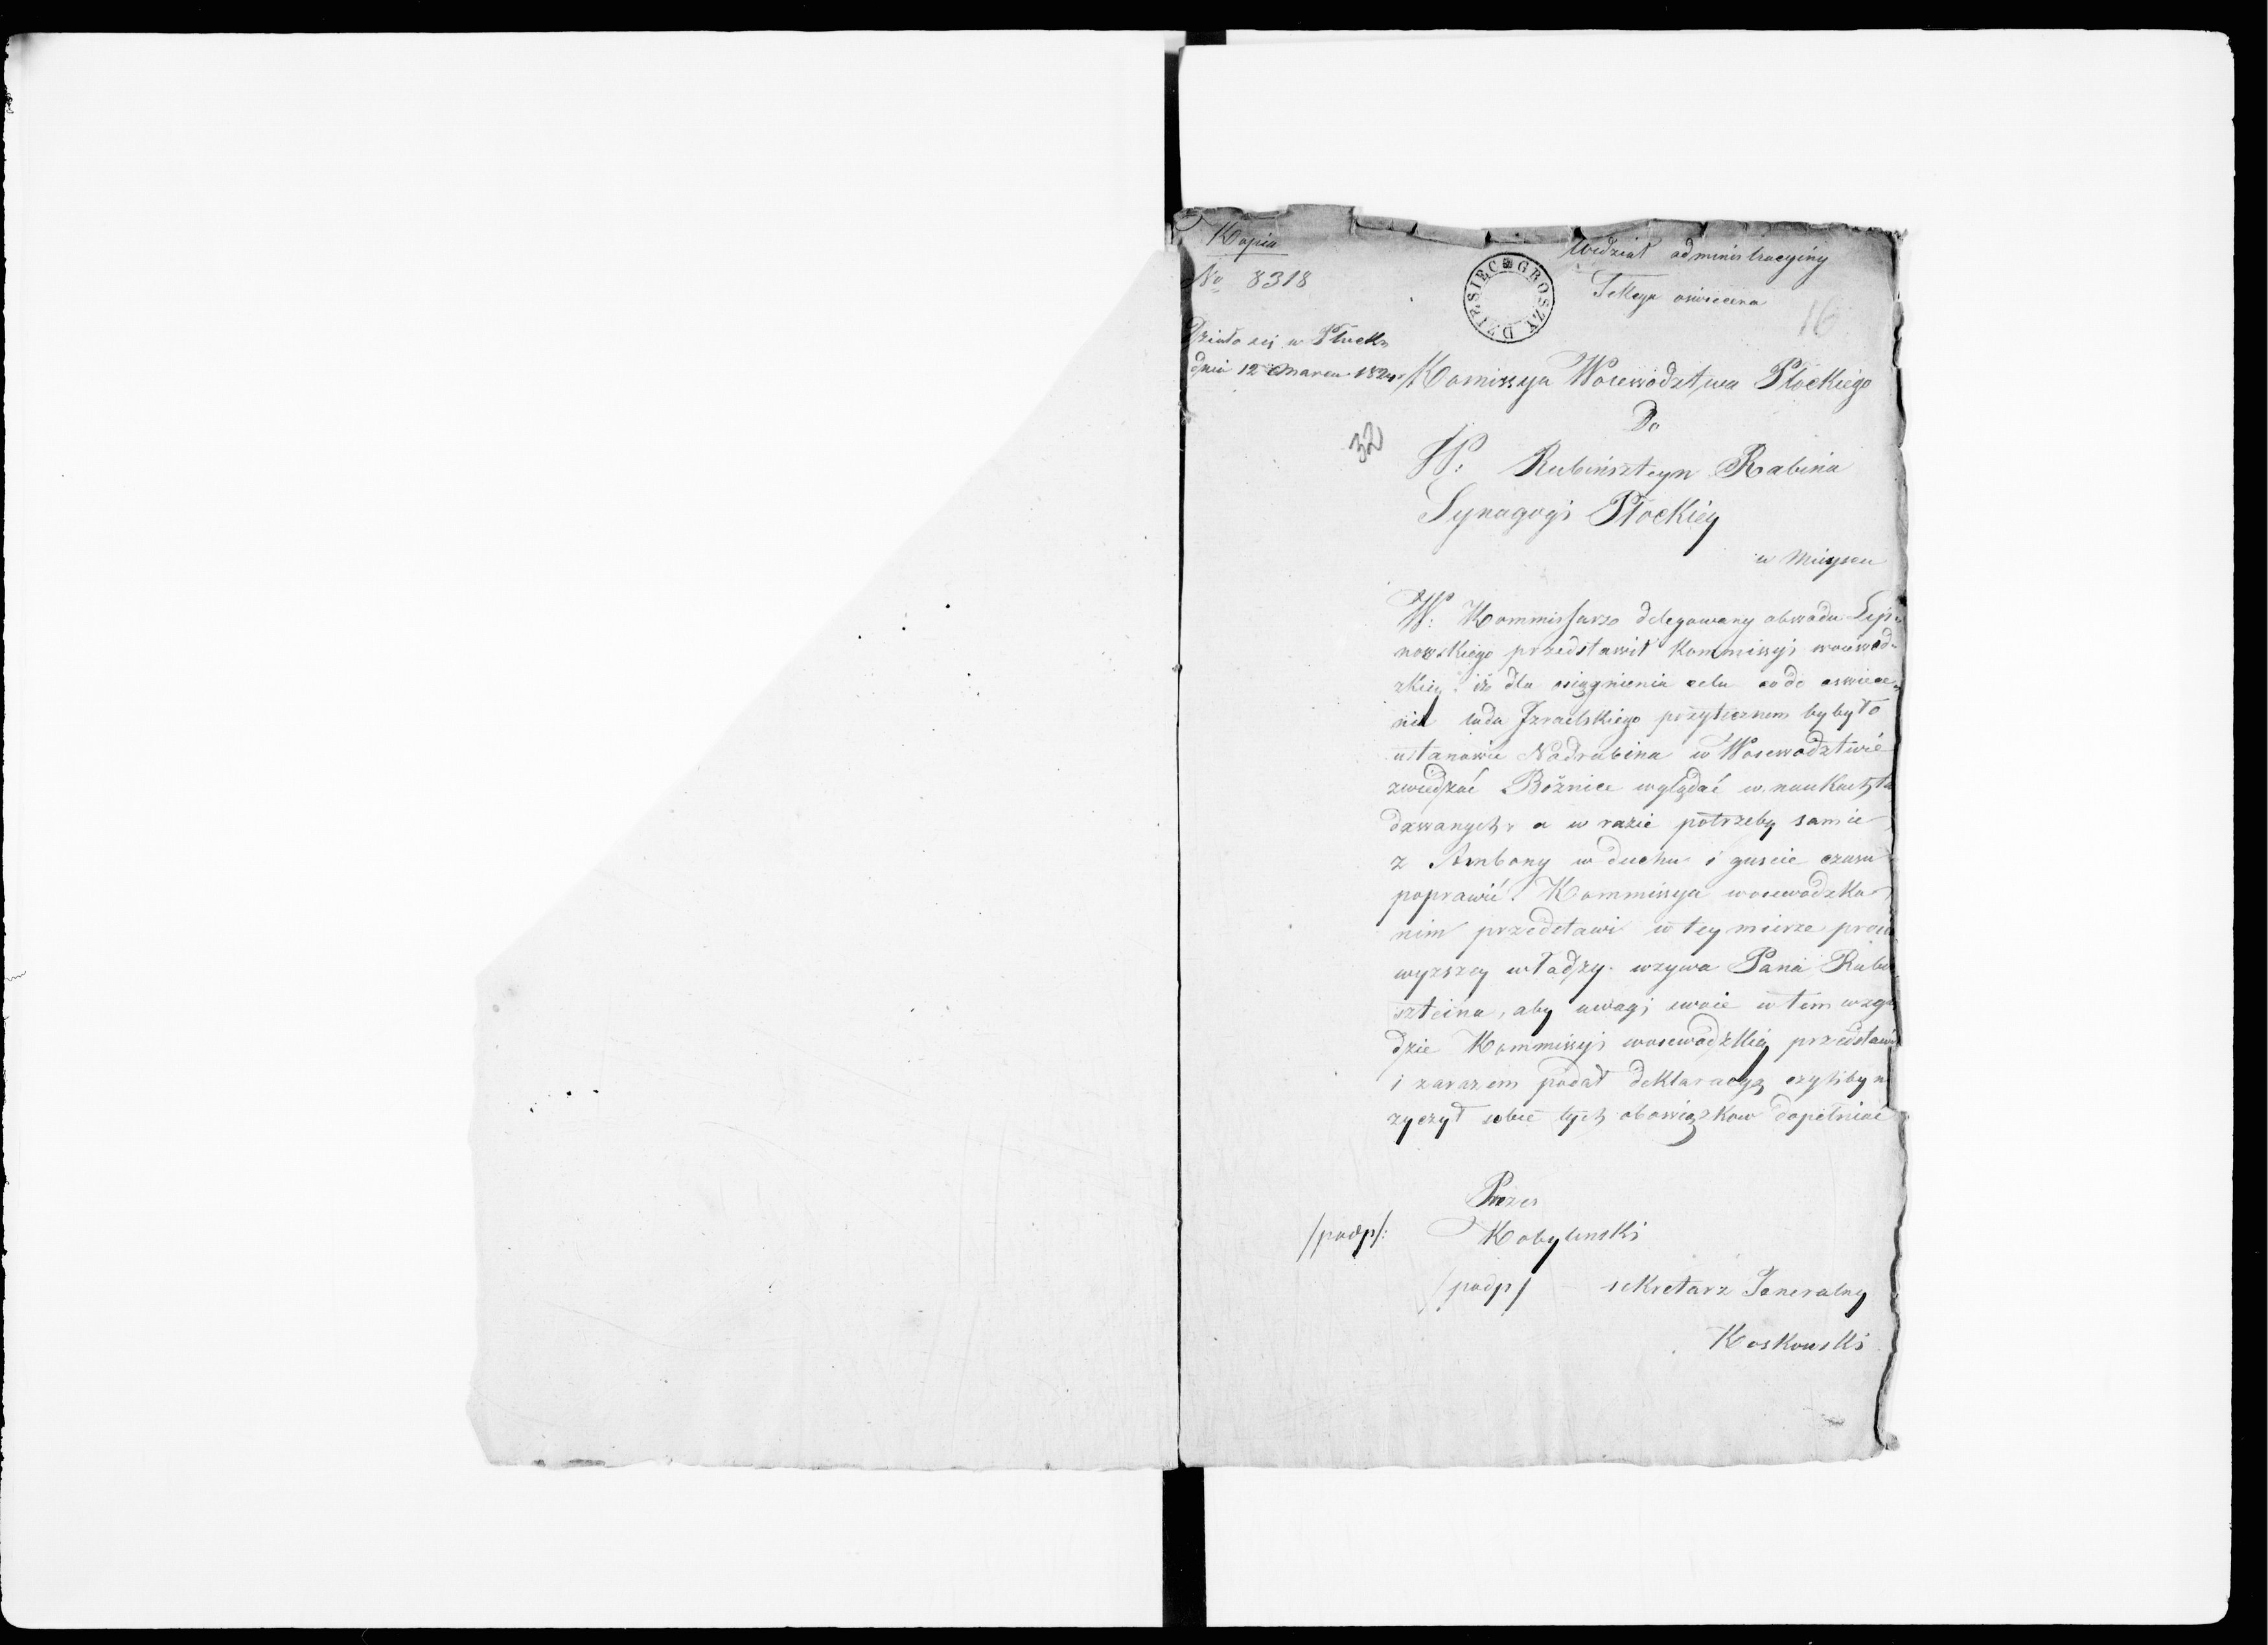 Kopia
No 8318
Widział administracyiny
Sekcya oswiecena
DZIESIĘC GROSZY
16
Działo się w Płocku
dnia 12 Marca
Komissya Woiewodztwa Płockiego
Do
32
W: Rubinszteyn Rabina
Synagogi Płockiey
w Mieyscu
W: Kommissarz delegowany obwodu Lip-
nowskiego przedstawił Kommissyi woiewod-
zkiey iż dla osiągnienia celu co do oswiece-
nia ludu Izraelskiego pożytecznem by było
ustanowic Nadrabina w Woiewodztwie
zwiedzać Bożnice wglądać w naukach
dawanych, a w razie potrzeby samie
z Ambony w duchu i guscie czasu
poprawić. Kommissya woiewodzka
nim przedstawi w tey mierze
wyzszey władzy wzywa Pana Rubin
szteina, aby uwagi swoie w tem wzglę
dzie Kommissyi woiewodzkiey przedstawił
i zarazem podał deklaracyą czyliby
zyczył sobie tych obowiązkow dopełniać
Prezes
/podp/: Kobylinski
/podp/ sekretarz Jeneralny
Koskowski